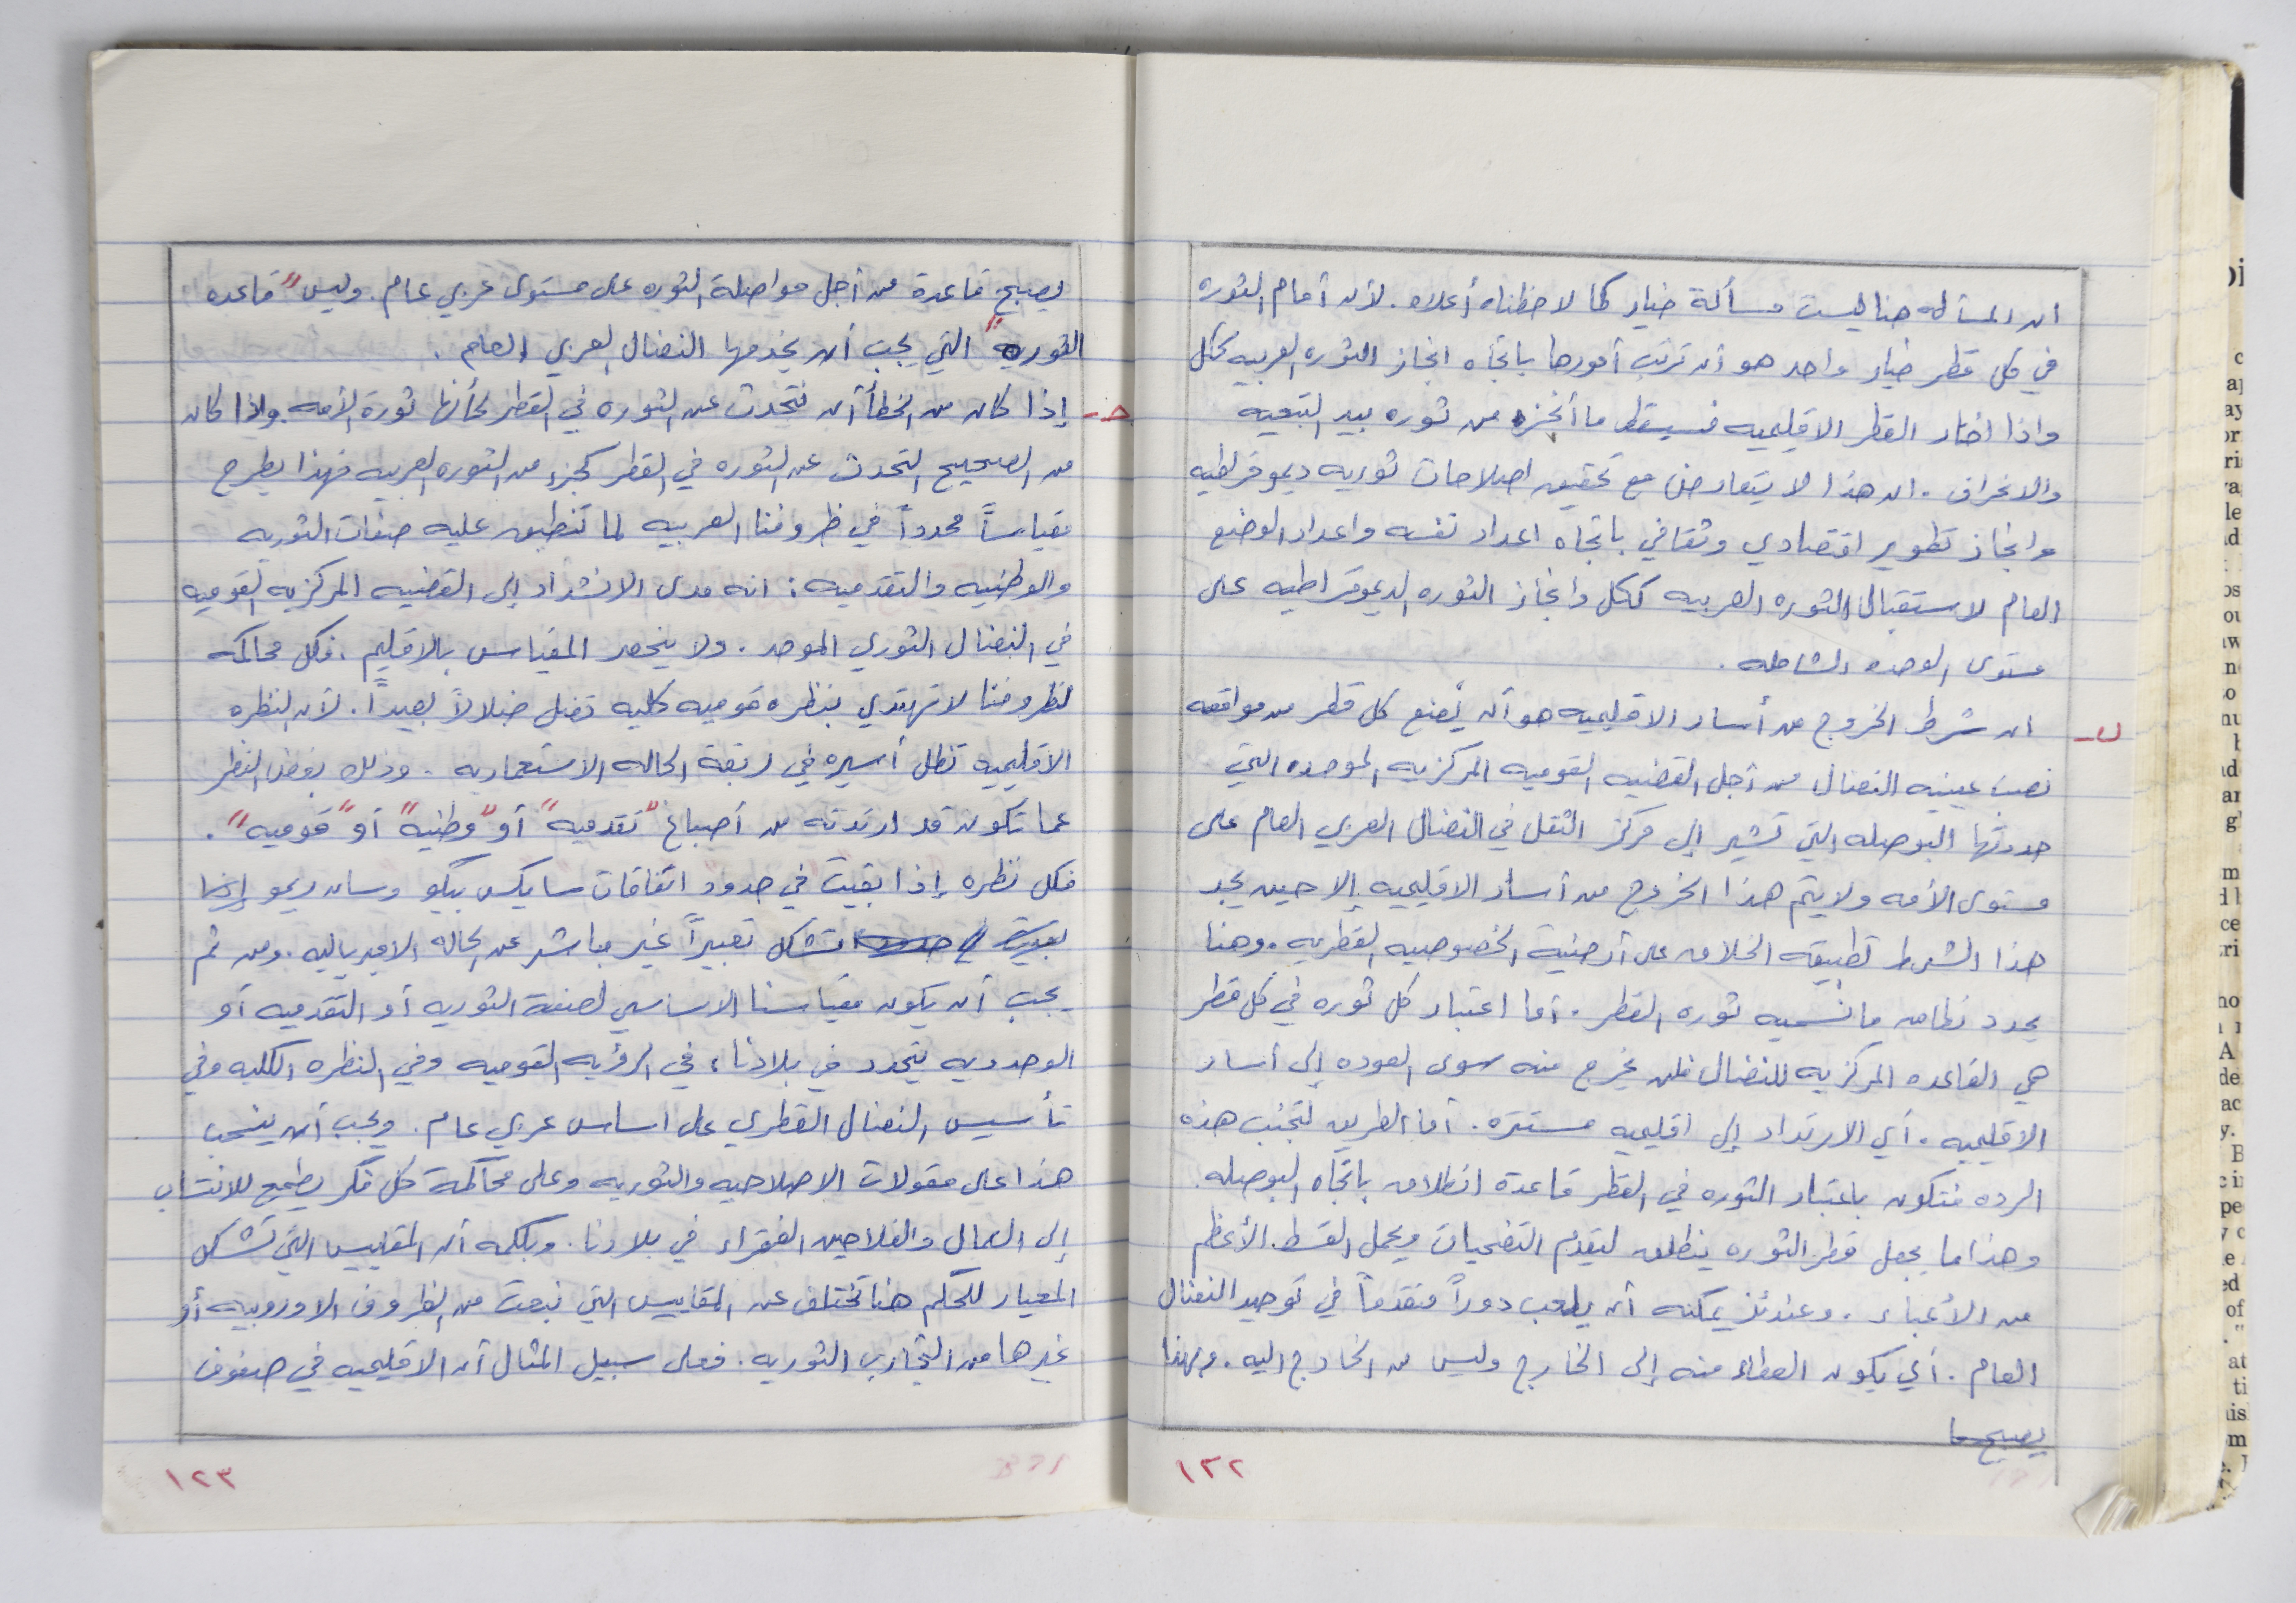 ان المسأله هنا ليست مسألة خيار كما لاحظناه أعلاه. لأن أمام الثوره
في كل قطر خيار واحد هو أن ترتب أمورها باتجاه انجاز الثوره العربيه ككل
واذا اختار القطر الاقليميه فسيقط ما أنجزه من ثوره بيد التبعيه
والانحراف. ان هذا لا يتعارض مع تحقيق اصلاحات ثوريه ديموقراطيه
وانجاز تطوير اقتصادي وثقافي باتجاه اعداد نفسه واعداد الوضع
العام لاستقبال الثوره العربيه ككل وانجاز الثوره الديموقراطيه على
مستوى الوحده الشامله.
ب- ان شرط الخروج من أسار الاقليميه هو أن يضع كل قطر من مواقعه
نصب عينيه النضال من أجل القضيه القوميه المركزيه الموحده التي
حددتها البوصله التي تشير إلى مركز الثقل في النضال العربي العام على
مستوى الأمه ولا يتم هذا الخروج من أسار الاقليميه إلا حين يجد
هذا الشرط تطبيقه الخلاق على أرضية الخصوصيه القطريه. وهنا
يحدد نطاق ما نسميه ثوره القطر. أما اعتبار كل ثوره في كل قطر
هي القاعده المركزيه للنضال فلن يخرج منه سوى العوده إلى أسار
الاقليميه. أي الارتداد إلى اقليميه مستتره. أما الطريق لتجنب هذه
الرده فتكون باعتبار الثوره في القطر قاعدة انطلاق باتجاه البوصله.
وهذا ما يجعل قطر الثوره ينطلق ليقدم التضحيات ويحمل القسط الأعظم
من الأعباء. وعندئذ يمكنه أن يلعب دوراً متقدماً في توحيد النضال
العام. أي يكون العطاء منه إلى الخارج وليس من الخارج اليه. وبهذا
يصبح
١٢٢
يصبح قاعدة من أجل مواصلة الثوره على مستوى عربي عام. وليس "قاعده
الثوريه" التي يجب أن يخدمها النضال العربي العام.
ج- إذا كان من الخطأ أن نتحدث عن الثوره في القطر كأنها ثورة الأمه. وإذا كان
من الصحيح التحدث عن الثوره في القطر كجزء من الثوره العربيه فهذا يطرح
مقياساً محدداً في ظروفنا العربيه لما تنطبق عليه صفات الثوريه
والوطنيه والتقدميه: انه مدى الانشداد إلى القضيه المركزيه القوميه
في النضال الثوري الموحد. ولا ينحصر المقياس بالاقليم. فكل محاكمه
لظروفنا لا تهتدي بنظره قوميه كليه تضل ضلالاً بعيداً. لأن النظره
الاقليميه تظل أسيره في ربقة الحاله الاستعماريه. وذلك بغض النظر
عما تكون قد ارتدته من أصباغ "تقدميه" أو "وطنيه" أو "قوميه".
فكل نظره إذا بقيت في حدود اتفاقات سايكس بيكو وسان ريمو إنما
تشكل تعبيراً غير مباشر عن الحاله الامبرياليه. ومن ثم
يجب أن يكون مقياسنا الاساسي لصفة الثوريه أو التقدميه أو
الوحدويه يتحدد في بلادنا، في الرؤيه القوميه وفي النظره الكليه وفي
تأسيس النضال القطري على اساس عربي عام. ويجب أن ينسحب
هذا على مقولات الاصلاحيه والثوريه وعلى محاكمة كل فكر يطمح للانتساب
إلى العمال والفلاحين الفقراء في بلادنا. وبكلمه أن المقاييس التي تشكل
المعيار للحكم هنا تختلف عن المقاييس التي نبعت من الظروف الاوروبيه أو
غيرها من التجارب الثوريه. فعلى سبيل المثال أن الاقليميه في صفوف
١٢٣